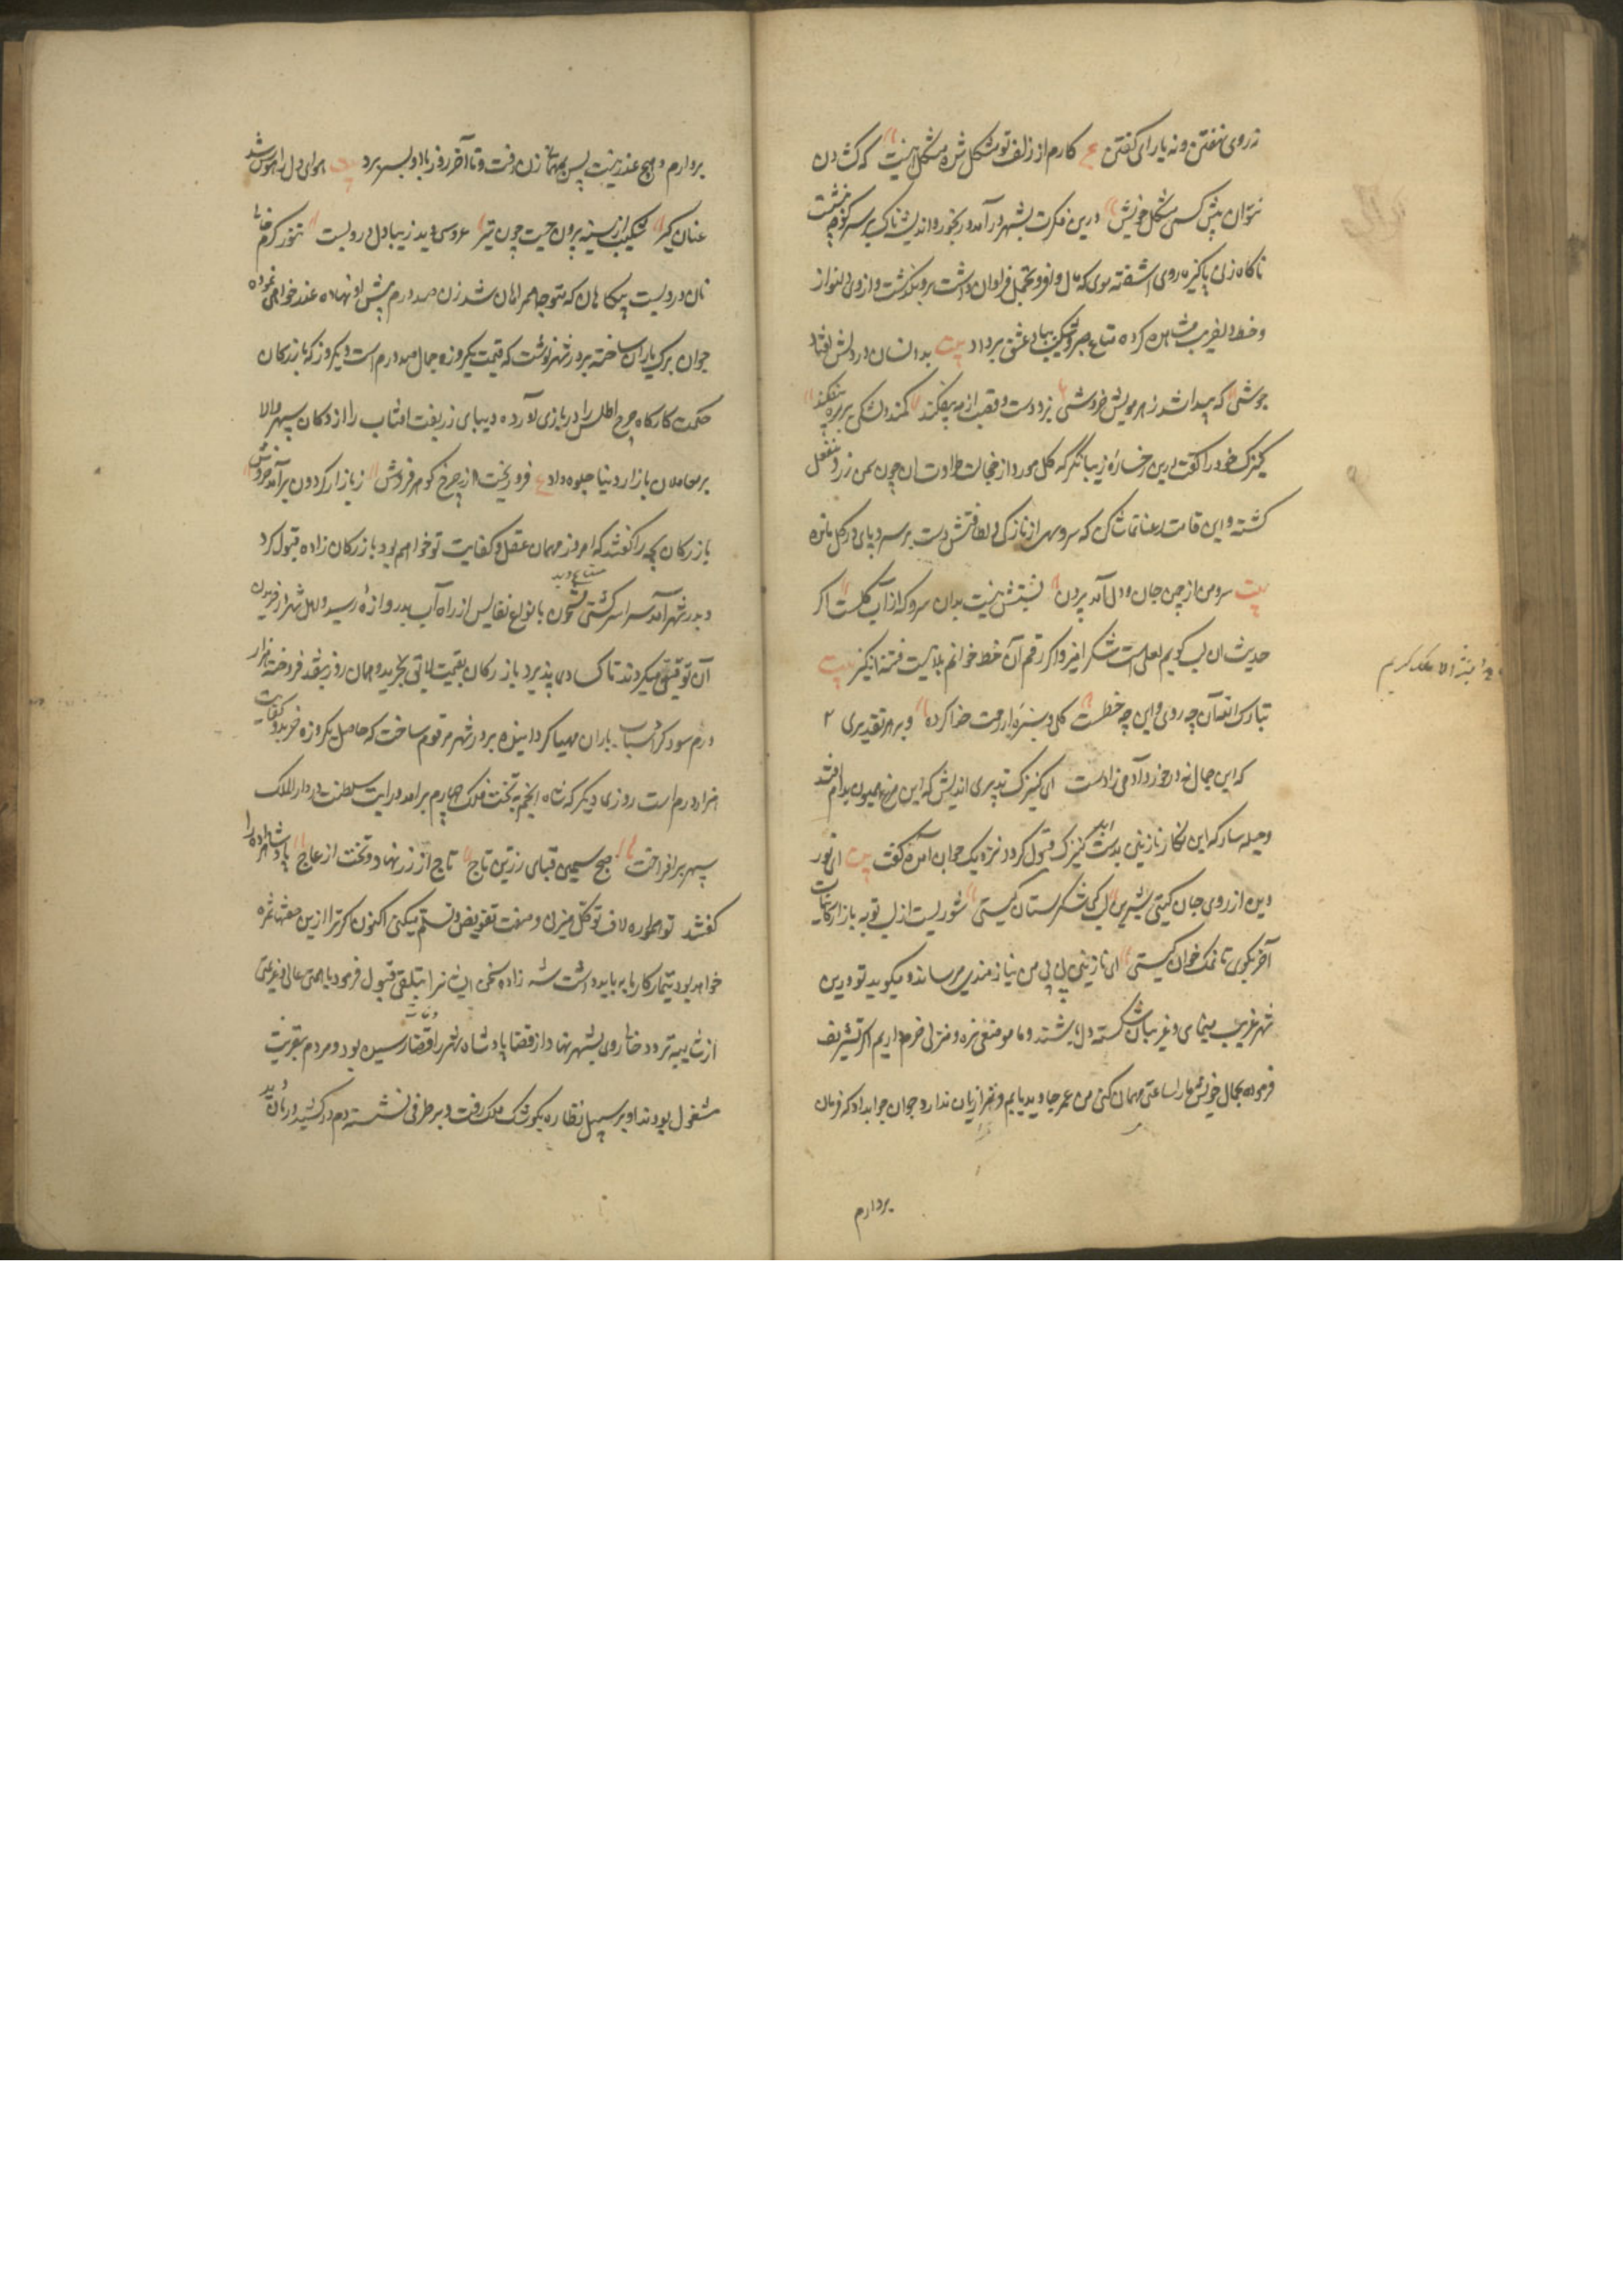 نه روی نهفتن و نه یارای گفتن ع کارم از زلف تو مشکل شده مشکل اینست که شدن
نتوان پیش کسی مشکل خویش درین فکرت بشهر در آمد و رنجور و اندیشناک بر سر کوچه بنشست
ناکاه زنی پاکیزه روی اشفته موی که مال وافر و تجمل فراوان داشت برو بگذشت و از روی دلنواز
و خط دلفریب مشاهده کرده متاع صبر و شکیب بباد عشق بر داد بیت بدانسان در دلش افتاد
جوشی که پیدا شد ز هر مویش خروشی بزد دست و قصب از مه بیفکند کمند مشکی بر بیفکند
کنیزک خود را کفت درین رخساره زیبا نکر که کل مورد از خجالت طراوت ان چون سمن زرد و منفعل
کشته و این قامت رعنا تماشا کن که سرو سهی از نازکی و لطافتش دست بر سر و پای در کل مانده
بیت سرو من از چمن جان و دل آمد بیرون نسبتش نیست بدان سرو که از آب و کلست اکر
حدیث ان لب کویم لعلی است شکر امیز و اکر رقم آن خط خوانم بلائیست فتنه انکیز بیت
تبارک الله آن چه روی و این چه خطست کل و سبزه از رحمت خدا کرده و بر هر تقدیری
که این جمال نه در خورد آدمی زادست ای کنیزک تدبیری اندیش که این مرغ همیون بدام افتد
و حیله ساز که این نکار نازنین بدست اید کنیزک قبول کرد و نزدیک جوان آمده کفت بیت ای نور
دین از روی جان کیستی شیرین لبی شکرستان کیستی شوریست از لب تو به بازار کاینات
آخر بکوی تا نمک خوان کیستی ای نازنین بی بی من نیازمندی میرساند و میکوید تو درین
شهر غریب مینمای و غریبان شکسته دل باشند و ما موضعی نزه و منزلی خرم داریم اکر تشریف
فرموده بجمال خویش ما را ساعتی مهمان کنی من عمر جاوید یابم و تو را زیان ندارد جوان جوابداد که فرمان
بردارم
بردارم و هیچ عذر نیست پس بمهمان زن رفت و تا آخر روز با او بسر برد بیت هوای دل را هوس شد
عنان کیر شکیب از سینه بیرون جست چون تیر عروسی دید زیبا دل درو بست تنور کرم حالی
نان درو بست پیکاهان که متوجه همراهان شد زن صد درم پیش او نهاده عذر خواهی نموده
جوان برک یاران ساخته بر در شهر نوشت که قیمت یکروزه جمال صد درم است دیکر روز که بازرکان
حکمت کارکاه چرخ اطلس را در بازی آورده دیبای زربفت افتاب را از دکان سپهر والا
بر معاملان بازار دنیا جلوه داد ع فرو ریخت زر چرخ کوهر فروش ز بازار کردون برآمد خروش
بازرکان بچه را کفتند که امروز مهمان عقل و کفایت تو خواهیم بود بازرکان زاده قبول کرد
و بدر شهر آمد سراسر کشتی مشحون بانواع نفایس از راه آب بدروازه رسید و اهل شهر در خریدن
آن توقفی میکردند تا کسادی پذیرد بازرکان بقیمت لایق بخرید و همان روز بنقد فروخته هزار
درم سود کرد اسباب یاران مهیا کردانیده بر در شهر مرقوم ساخت که حاصل یکروزه خرد و کفایت
هزار درم است روزی دیکر که شاه انجم به تخت فلک چهارم برامد و رایت سلطنت در دارالملک
سپهر برافراخت صبح سیمین قبای زرین تاج تاج از زر نهاد و تخت از عاج پادشاهزاده را
کفتند تو همواره لاف توکل میزنی و صفت تفویض و تسلیم میکنی اکنون اکر ترا ازین صفتها ثمره
خواهد بود تیمار کار ما به باید داشت شه زاده سخن ایشانرا بتلقی قبول فرمود با همتی عالی و نیتی
از شایبه تردد خالی روی بشهر نهاد از قضا پادشاه شهر را قضا رسیده بود و مردم بتعزیت
مشغول بودند او بر سبیل نظاره بکوشک ملک رفت و بر طرفی نشسته دم در کشید دربان دید